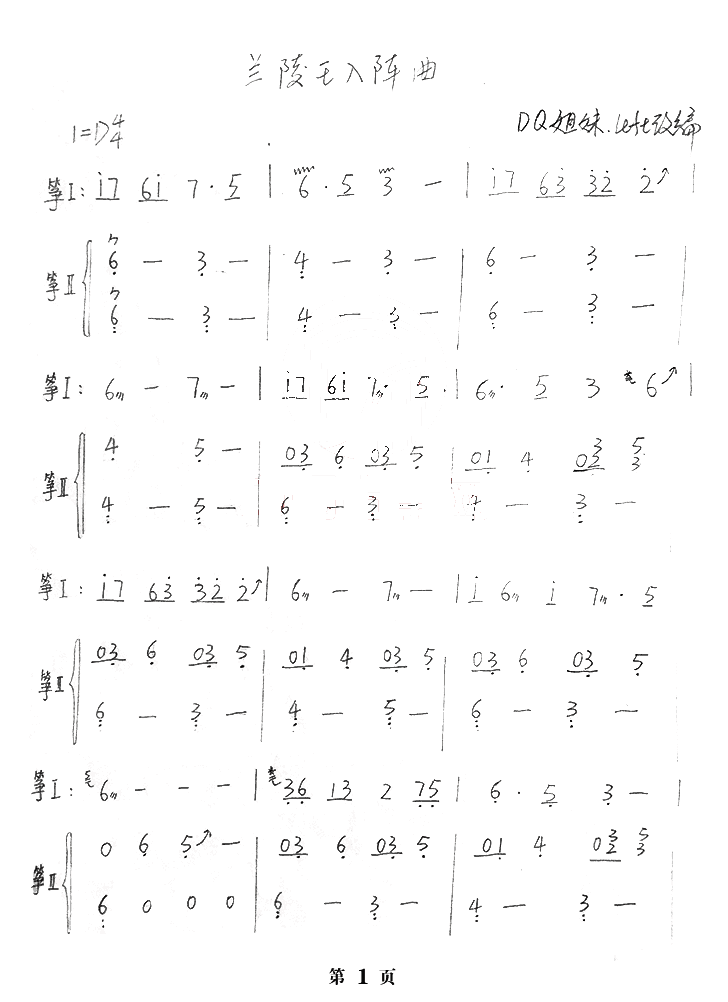 兰陵王入阵曲
1=D 4/4
DQ姐妹.left改编
筝I: i7 6i 7 · 5 | 6 · 5 3 — | i7 63 32 2 |
筝II 6 — 3 — | 4 — 3 — | 6 — 3 —
6 — 3 — | 4 — 3 — | 6 — 3 —
筝I: 6 — 7 — | i7 6i 7 · 5 · | 6 · 5 3 6 |
筝II 4 5 — | 03 6 03 5 | 01 4 02 3
3 5
4 — 5 — | 6 — 3 — | 4 — 3 —
筝I: i7 63 32 2 | 6 — 7 — | i 6 i 7 · 5
筝II 03 6 03 5 | 01 4 03 5 | 03 6 03 5
6 — 3 — | 4 — 5 — | 6 — 3 —
筝I: 6 — — — | 36 13 2 75 | 6 · 5 3 — |
筝II 0 6 5 — | 03 6 03 5 | 01 4 02 3
3 5
6 0 0 0 | 6 — 3 — | 4 — 3 —
第 1 页